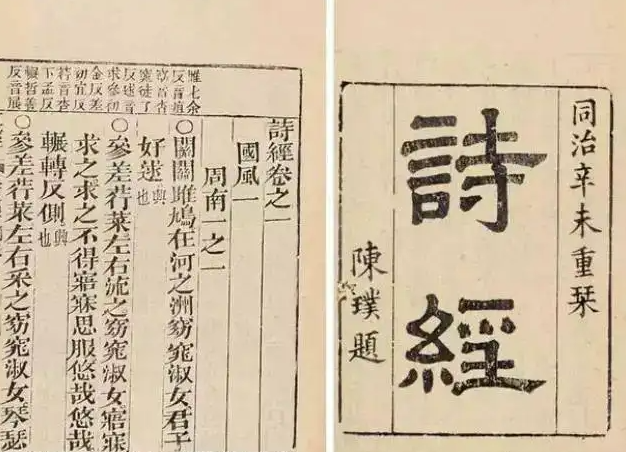 同治辛未重栞
詩經
陳璞題
雎七余
反音
窈音杳
窕徒了
反逑音
求參初
金反差
初宜反
荇音杏
下孟反
輾哲善
反音展
詩經卷之一
國風一
周南一之一
〇關關雎鳩在河之洲窈窕淑女君子
好逑興也
〇參差荇菜左右流之窈窕淑女寤寐
求之求之不得寤寐思服悠哉悠哉
輾轉反側興也
〇參差荇菜左右采之窈窕淑女琴瑟